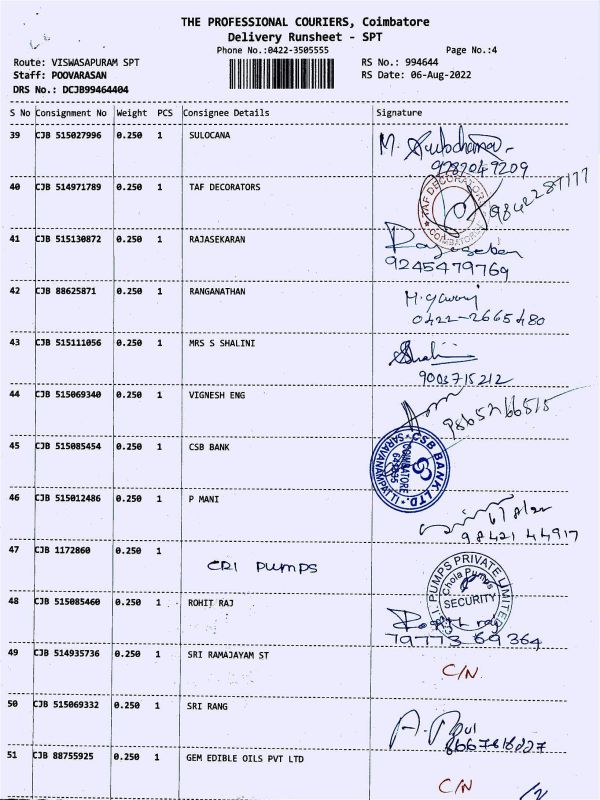 THE PROFESSIONAL COURIERS, Coimbatore
Delivery Runsheet - SPT
Phone No.:0422-3505555 Page No.:4
Route: VISWASAPURAM SPT RS No.: 994644
Staff: POOVARASAN RS Date: 06-Aug-2022
DRS No.: DCJB99464404
S No Consignment No Weight PCS Consignee Details Signature
39 CJB 515027996 0.250 1 SULOCANA M. Sulochana
9787047209
40 CJB 514971789 0.250 1 TAF DECORATORS TAF DECORATOR COIMBATORE
41 CJB 515130872 0.250 1 RAJASEKARAN Rajasekaran
9245479769
42 CJB 88625871 0.250 1 RANGANATHAN
0422-2665480
43 CJB 515111056 0.250 1 MRS S SHALINI Shalini
9003715212
44 CJB 515069340 0.250 1 VIGNESH ENG
45 CJB 515085454 0.250 1 CSB BANK CSB BANK LTD. SARAVANAMPATTI COIMBATORE
46 CJB 515012486 0.250 1 P MANI
98421 44917
47 CJB 1172860 0.250 1 CRI PUMPS C.R.I. PUMPS PRIVATE LIMITED Chola Pumps SECURITY
48 CJB 515085460 0.250 1 ROHIT RAJ Rohit raj
79773 69364
49 CJB 514935736 0.250 1 SRI RAMAJAYAM ST C/N.
50 CJB 515069332 0.250 1 SRI RANG
51 CJB 88755925 0.250 1 GEM EDIBLE OILS PVT LTD C/N